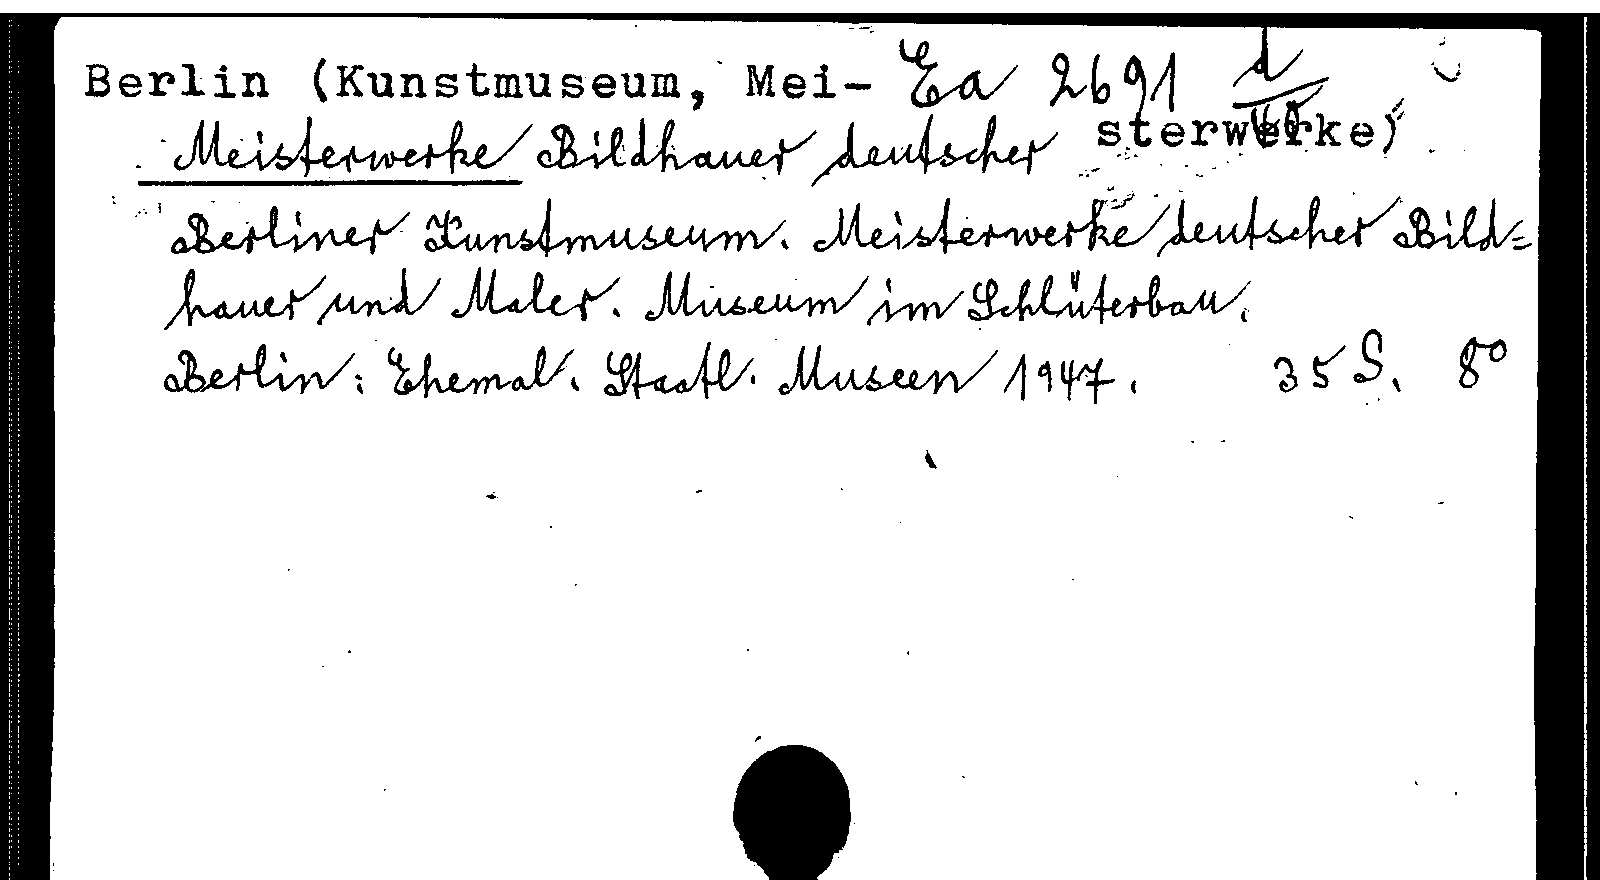 Berlin (Kunstmuseum, Mei- Ea 2691 d
sterwerke)
Meisterwerke Bildhauer deutscher
Berliner Kunstmuseum. Meisterwerke deutscher Bild=
hauer und Maler. Museum im Schlüterbau.
Berlin: Ehemal. Staatl. Museen 1947. 35 S. 8°